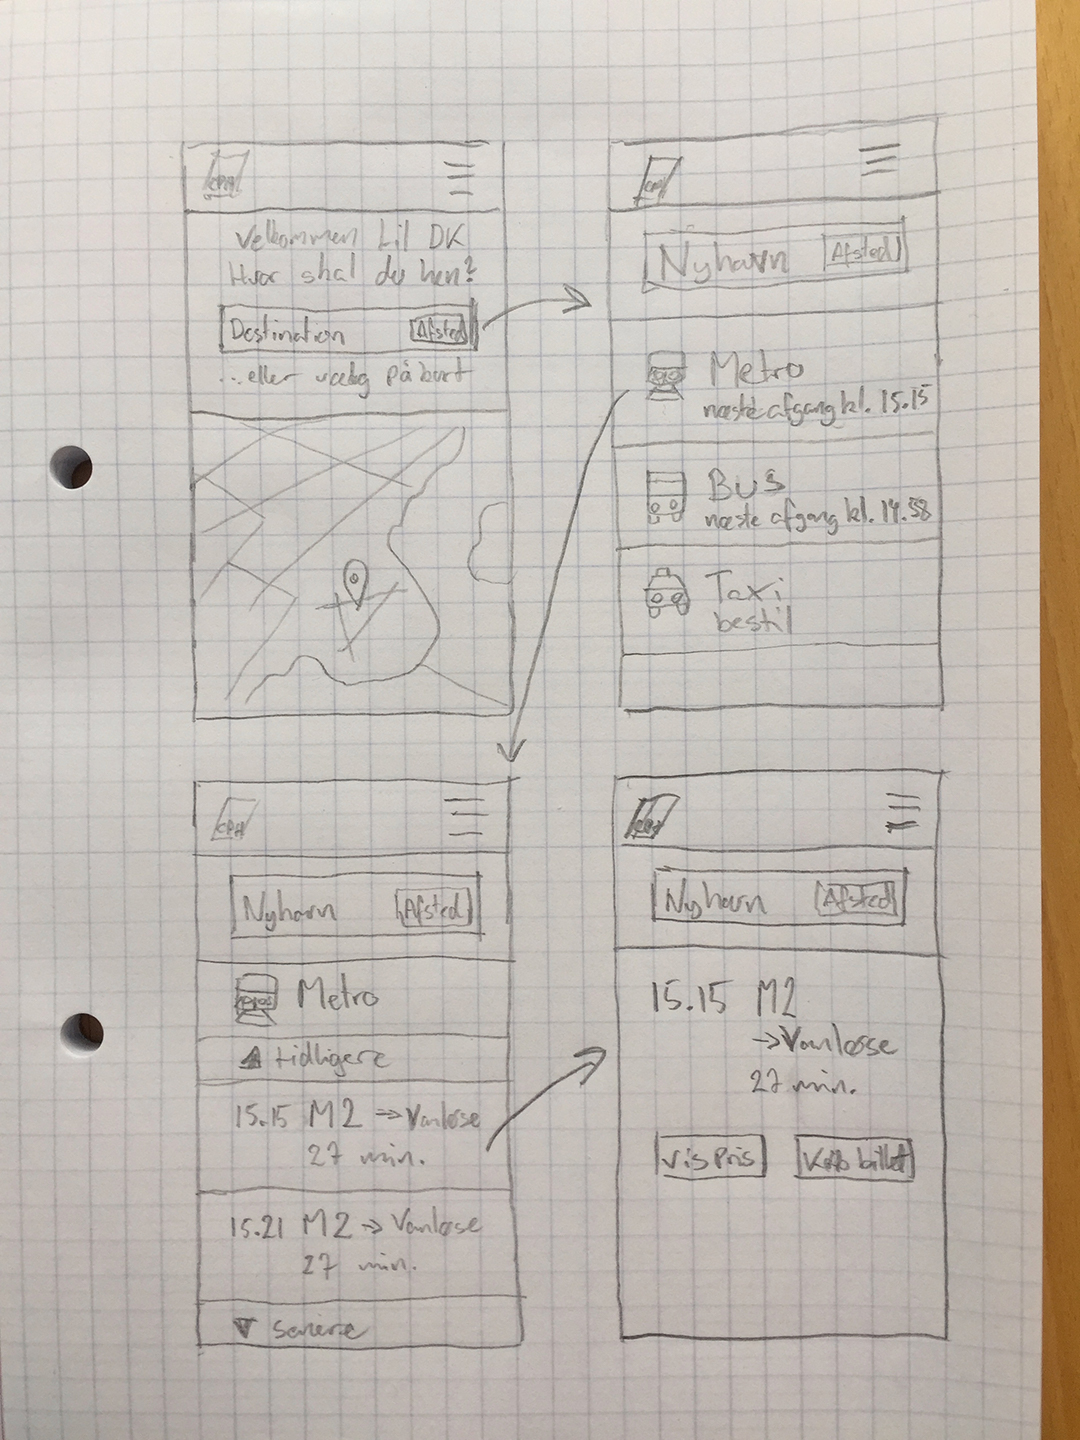 CPH
Velkommen til DK
Hvor skal du hen?
Destination Afsted
...eller vælg på kort
CPH
Nyhavn Afsted
Metro
næste afgang kl. 15.15
Bus
næste afgang kl. 14.58
Taxi
bestil
CPH
Nyhavn Afsted
Metro
tidligere
15.15 M2 → Vanløse
27 min.
15.21 M2 → Vanløse
27 min.
senere
CPH
Nyhavn Afsted
15.15 M2
→ Vanløse
27 min.
Vis Pris Køb billet